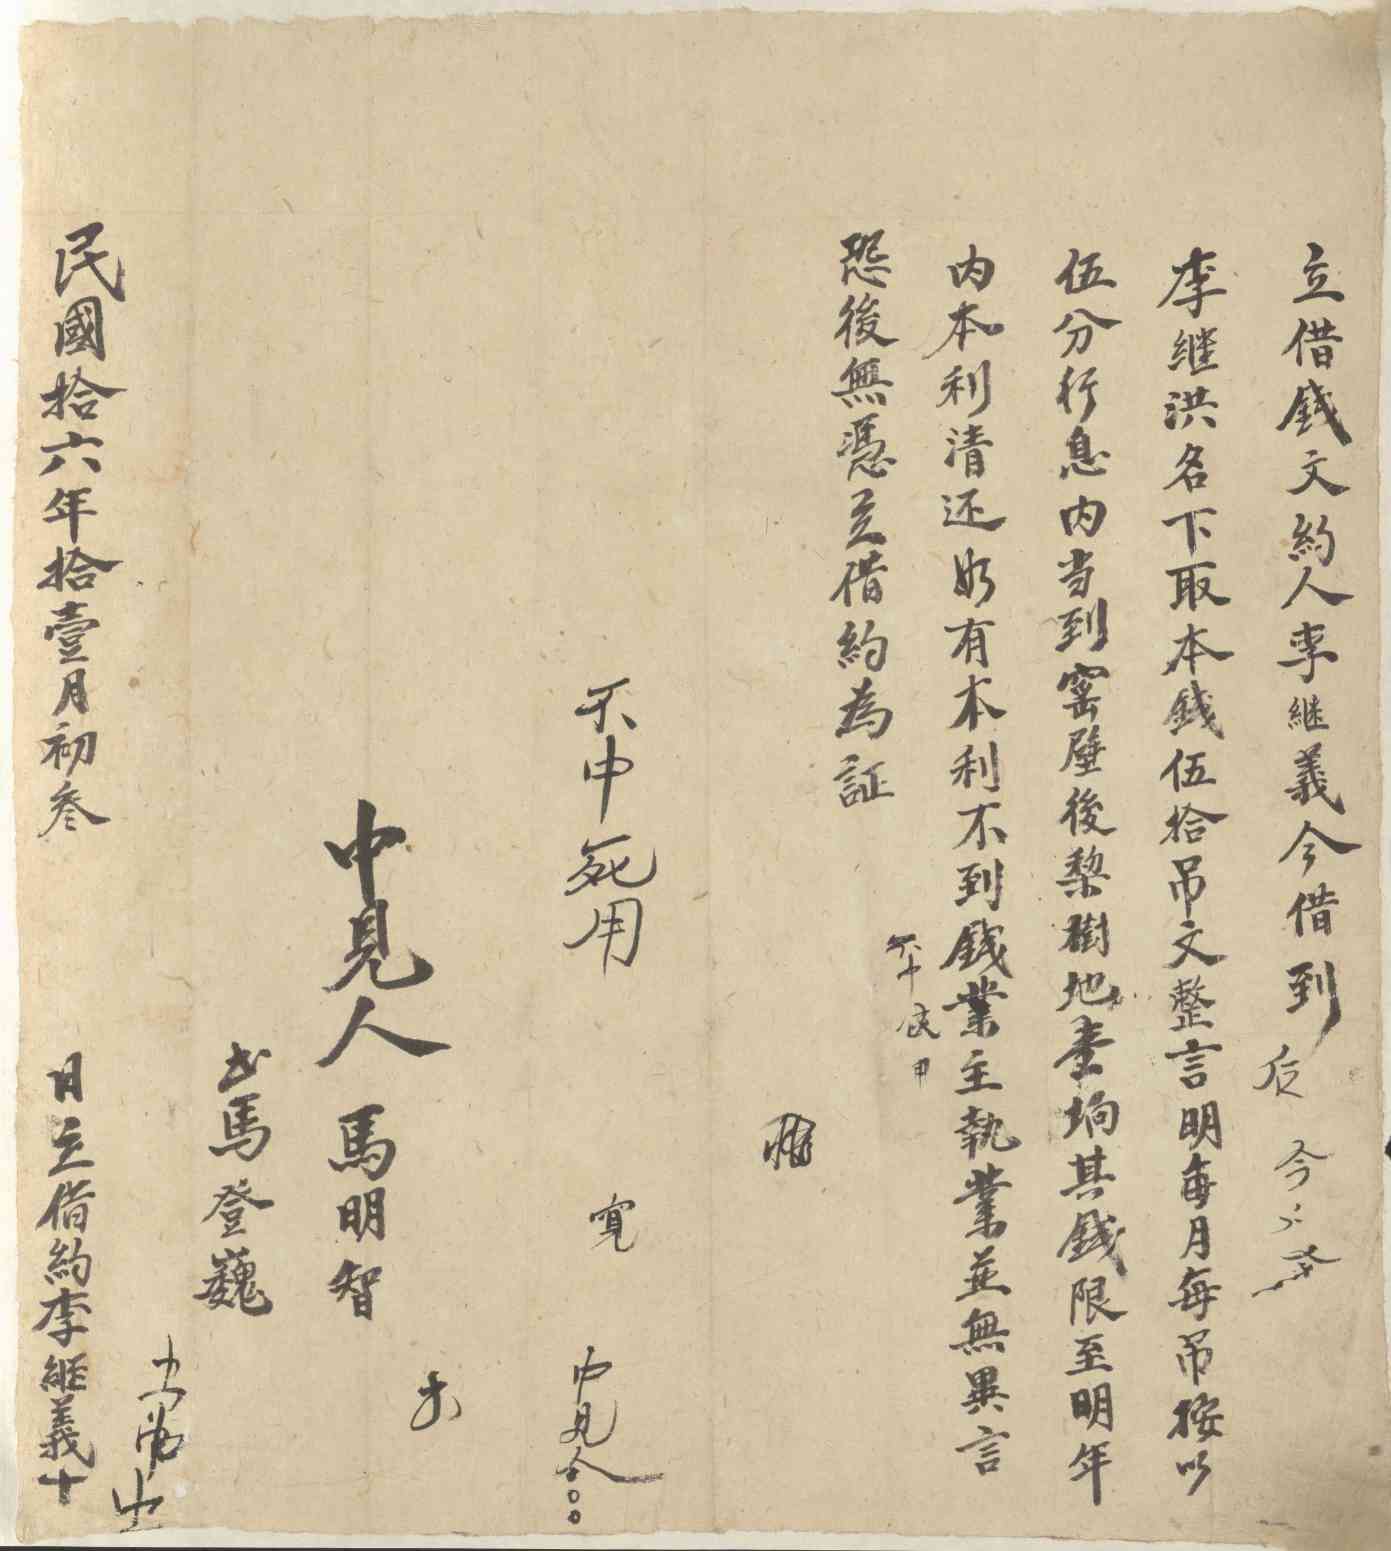 立借錢文約人李继義今借到
李继洪名下取本錢伍拾吊文整言明每月每吊按以
伍分行息内当到窑壁後梨樹地壹垧其錢限至明年
内本利清还如有本利不到錢業主執業並無異言
恐後無憑立借約為証
不中死用
寛
中見人
中見人 馬明智
馬登巍
民國拾六年拾壹月初叁 日立借約李継義十